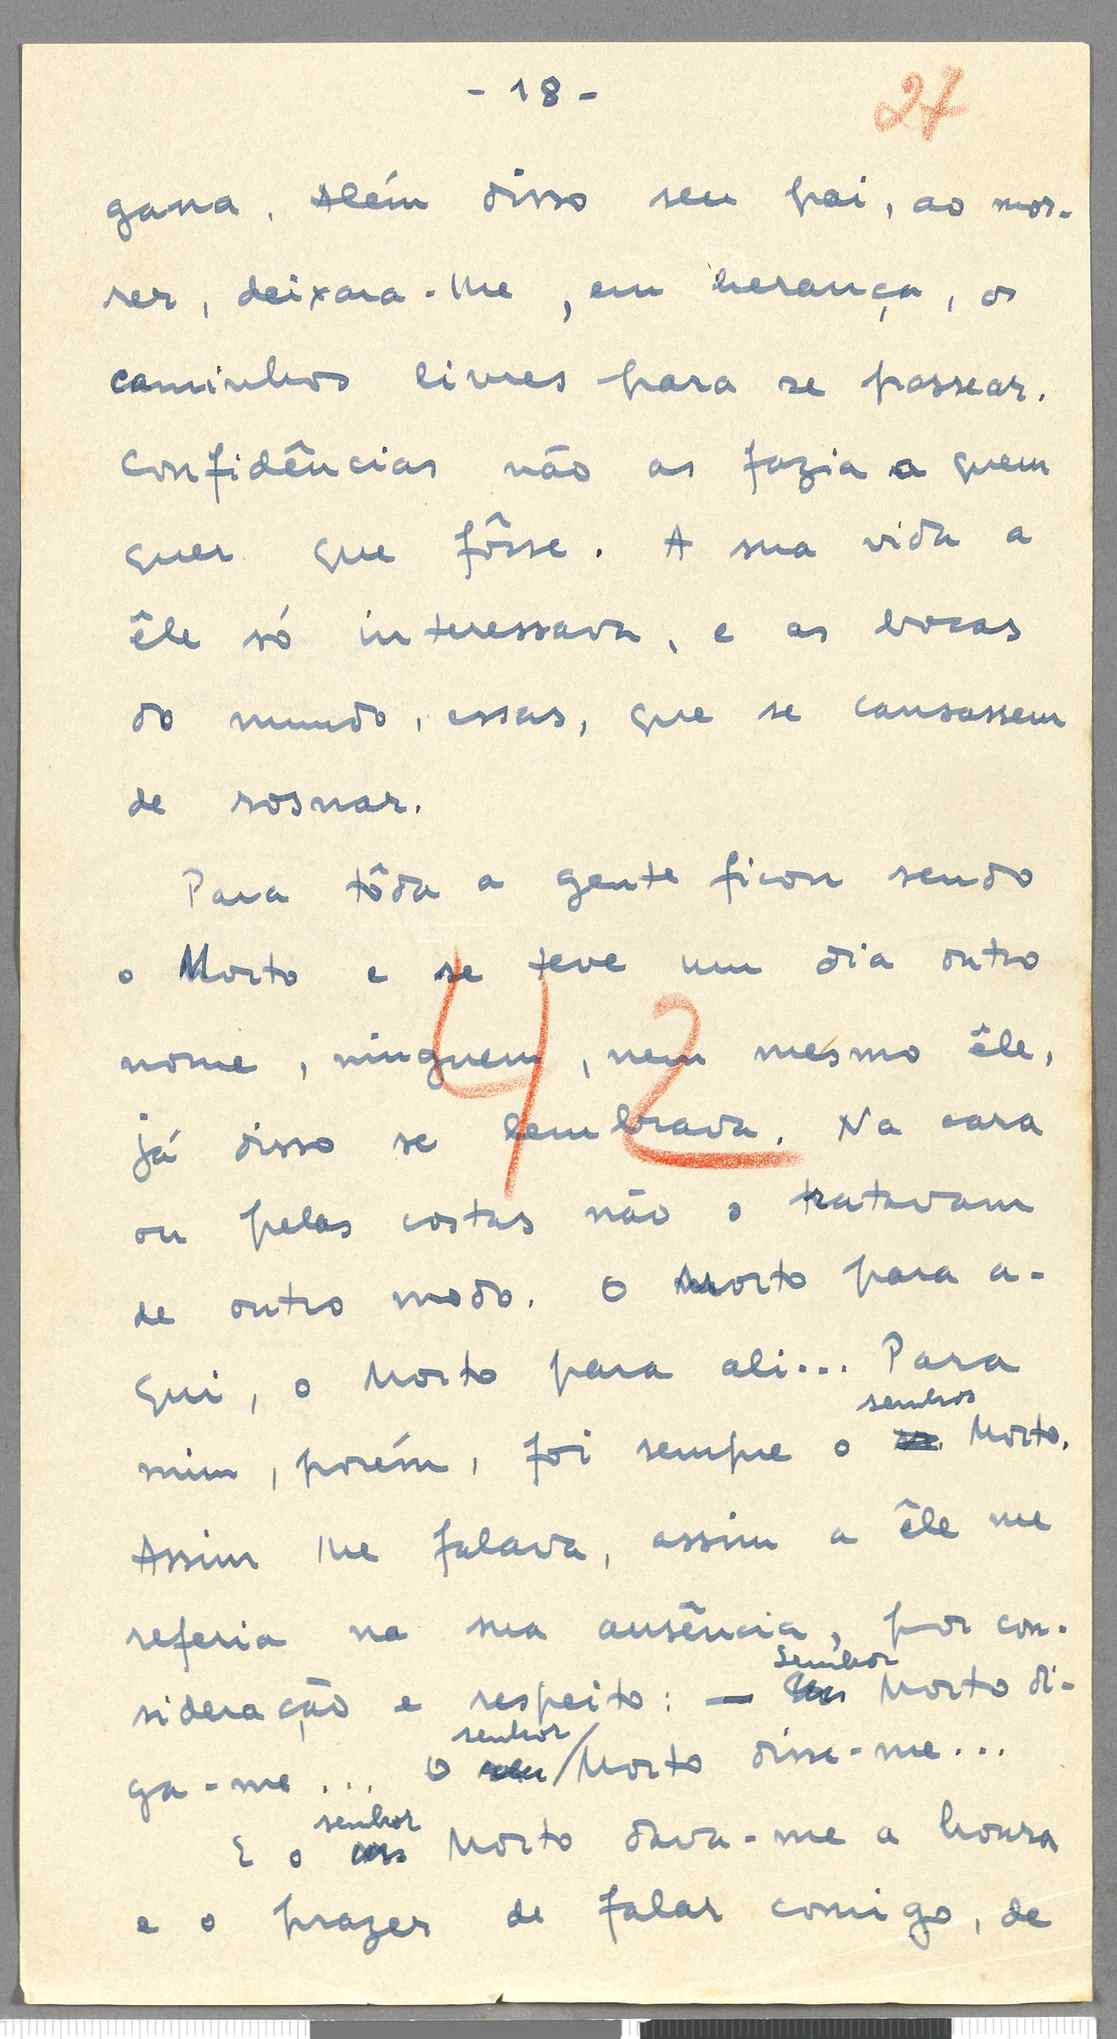 - 18 -
27
gana. Além disso seu pai, ao mor-
rer, deixara-lhe, em herança, os
caminhos livres para se passear.
Confidências não as fazia a quem
quer que fôsse. A sua vida a
êle só interessava, e as bocas
do mundo, essas, que se cansassem
de rosnar.
Para tôda a gente ficou sendo
o Morto e se teve um dia outro
nome, ninguem, nem mesmo êle,
já disso se lembrava. Na cara
42
ou pelas costas não o tratavam
de outro modo. O Morto para a-
qui, o Morto para ali... Para
senhor
mim, porém, foi sempre o Morto.
Assim lhe falava, assim a êle me
referia na sua ausência, por con-
Senhor
sideração e respeito: — Morto di-
senhor
ga-me... O Morto disse-me...
senhor
E o Morto dava-me a honra
e o prazer de falar comigo, de